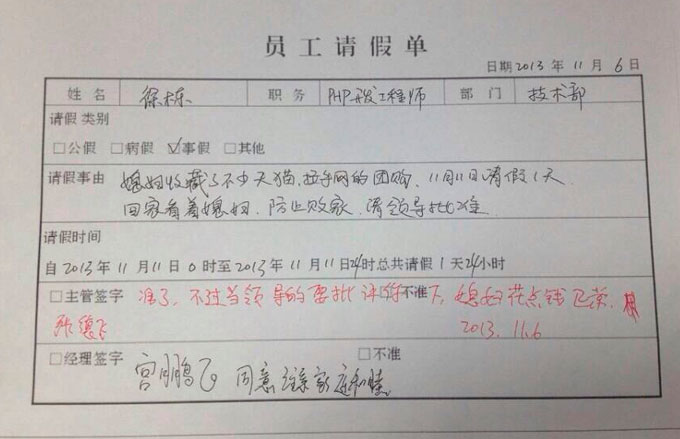 员工请假单
日期2013年11月6日
姓名 徐栋 职务 PHP开发工程师 部门 技术部
请假 类别
□公假 □病假 ☑事假 □其他
请假事由 媳妇收藏了不少天猫、拉手网的团购，11月11日请假1天，
回家看着媳妇、防止败家、请领导批准
请假时间
自2013年11月11日0时至2013年11月11日24时总共请假1天24小时
□主管签字 准了，不过当领导的要批评你下，媳妇花点钱正常， □不准
张德飞 2013.11.6
□经理签字 □不准
宫鹏飞 同意 家庭和睦